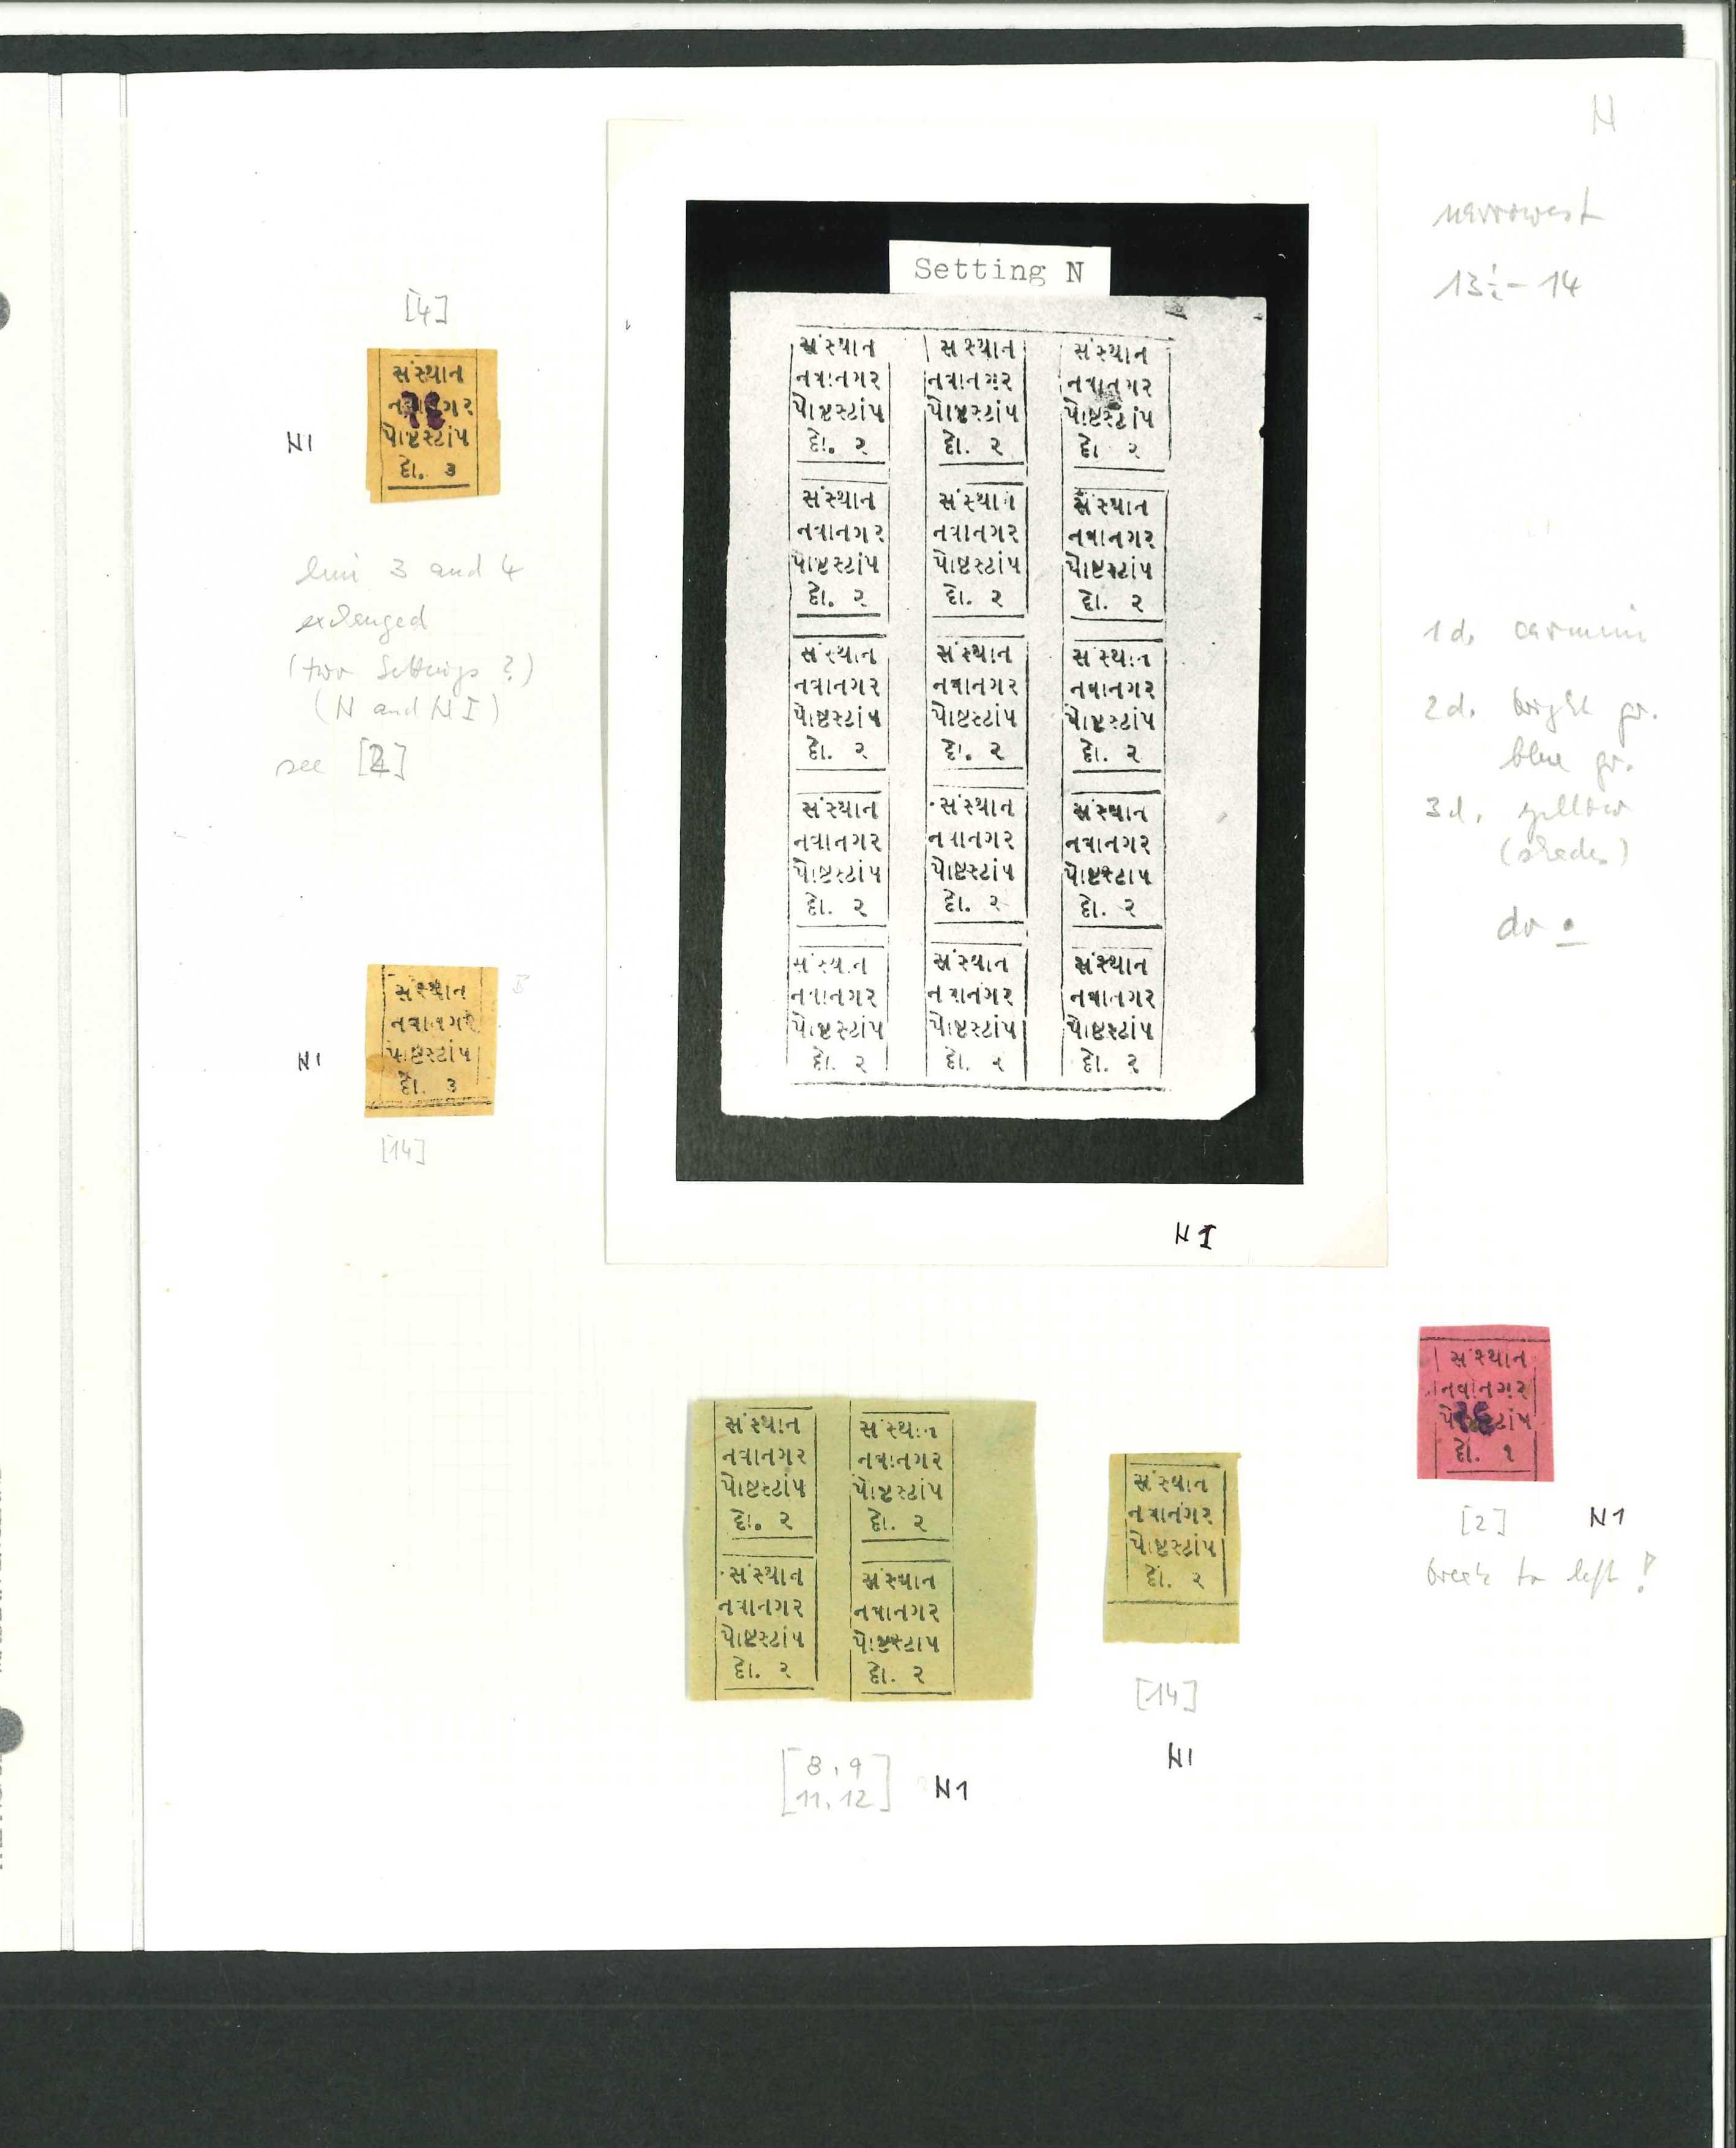 N
narrowest
13½ - 14
Setting N
સંસ્થાન સંસ્થાન સંસ્થાન
નવાનગર નવાનગર નવાનગર
પોષ્ટસ્ટાંપ પોષ્ટસ્ટાંપ પોષ્ટસ્ટાંપ
દો. ૨ દો. ૨ દો. ૨
સંસ્થાન સંસ્થાન સંસ્થાન
નવાનગર નવાનગર નવાનગર
પોષ્ટસ્ટાંપ પોષ્ટસ્ટાંપ પોષ્ટસ્ટાંપ
દો. ૨ દો. ૨ દો. ૨
સંસ્થાન સંસ્થાન સંસ્થાન
નવાનગર નવાનગર નવાનગર
પોષ્ટસ્ટાંપ પોષ્ટસ્ટાંપ પોષ્ટસ્ટાંપ
દો. ૨ દો. ૨ દો. ૨
સંસ્થાન સંસ્થાન સંસ્થાન
નવાનગર નવાનગર નવાનગર
પોષ્ટસ્ટાંપ પોષ્ટસ્ટાંપ પોષ્ટસ્ટાંપ
દો. ૨ દો. ૨ દો. ૨
સંસ્થાન સંસ્થાન સંસ્થાન
નવાનગર નવાનગર નવાનગર
પોષ્ટસ્ટાંપ પોષ્ટસ્ટાંપ પોષ્ટસ્ટાંપ
દો. ૨ દો. ૨ દો. ૨
N I
[4]
સંસ્થાન
નવાનગર
પોષ્ટસ્ટાંપ
દો. ૩
N1
3 and 4
exchanged
(two Settings ?)
(N and N I)
see [2]
સંસ્થાન
નવાનગર
પોષ્ટસ્ટાંપ
દો. ૩
N1
[14]
1d. carmine
2d. bright gr.
blue gr.
3d. yellow
(shades)
do .
સંસ્થાન સંસ્થાન
નવાનગર નવાનગર
પોષ્ટસ્ટાંપ પોષ્ટસ્ટાંપ
દો. ૨ દો. ૨
સંસ્થાન સંસ્થાન
નવાનગર નવાનગર
પોષ્ટસ્ટાંપ પોષ્ટસ્ટાપ
દો. ૨ દો. ૨
[8, 9
11, 12] N1
સંસ્થાન
નવાનગર
પોષ્ટસ્ટાંપ
દો. ૨
[14]
N1
સંસ્થાન
નવાનગર
પોષ્ટસ્ટાંપ
દો. ૧
[2] N1
break to left !